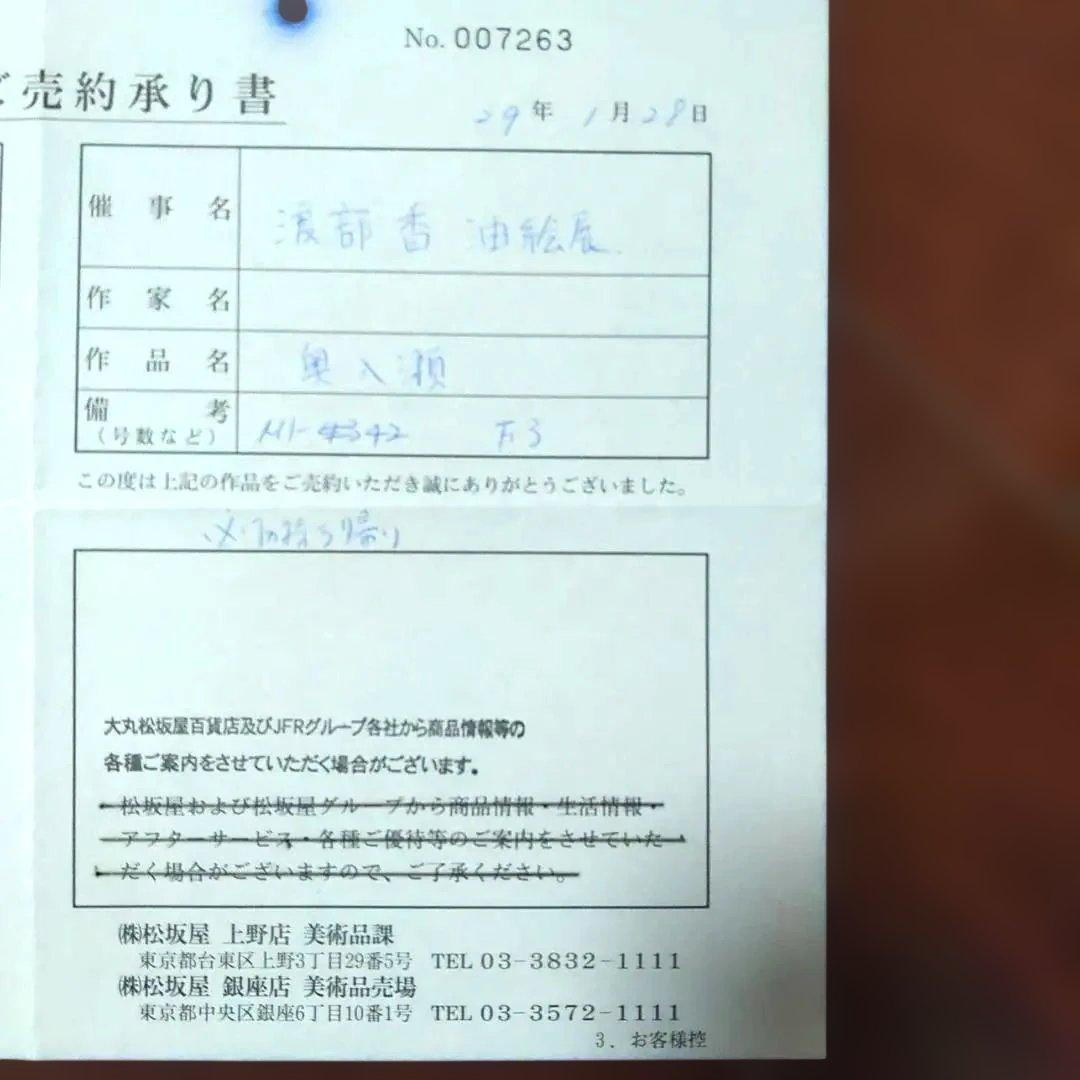 No. 007263
ご売約承り書
29年 1月28日
催事名 渡部香 油絵展
作家名
作品名 奥入瀬
備考
（号数など） F3
この度は上記の作品をご売約いただき誠にありがとうございました。
お持ち帰り
大丸松坂屋百貨店及びJFRグループ各社から商品情報等の
各種ご案内をさせていただく場合がございます。
松坂屋および松坂屋グループから商品情報・生活情報・
アフターサービス・各種ご優待等のご案内をさせていた
だく場合がございますので、ご了承ください。
㈱松坂屋 上野店 美術品課
東京都台東区上野3丁目29番5号 TEL 03-3832-1111
㈱松坂屋 銀座店 美術品売場
東京都中央区銀座6丁目10番1号 TEL 03-3572-1111
3．お客様控